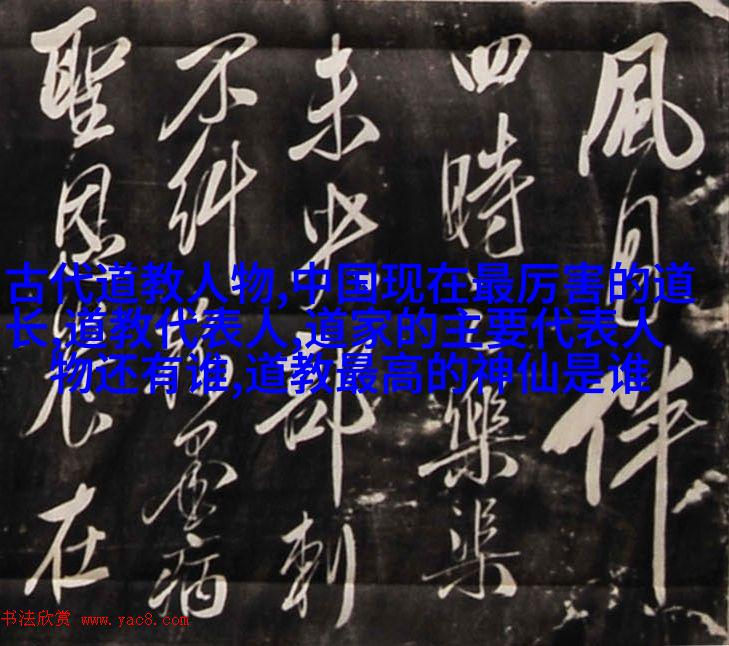 風月伴
四時樂渠
未央部刺
不糾墨病
聖恩在
古代道教人物,中国现在最厉害的道
长,道教代表人,道家的主要代表人
物还有谁,道教最高的神仙是谁
书法欣赏 www.yac8.com